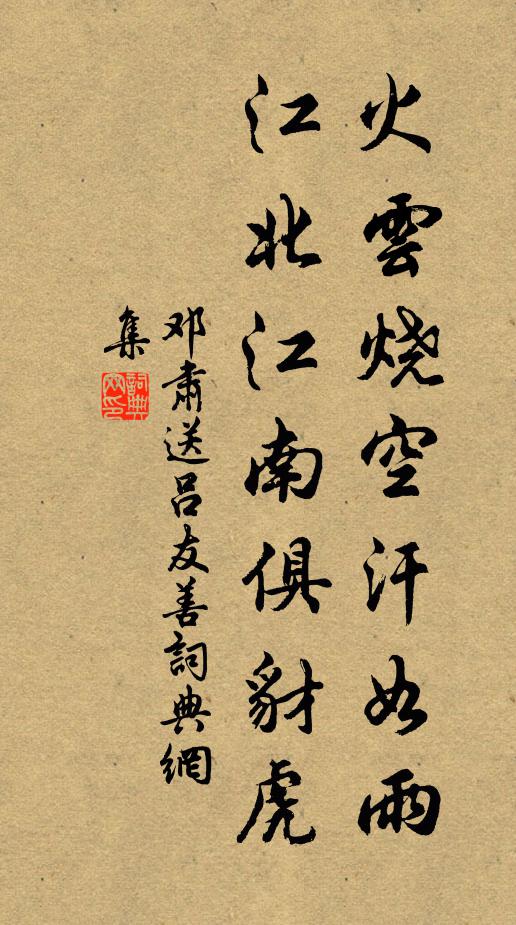 火雲燒空汗如雨
江北江南俱豺虎
邓肅送呂友善詞典網
集
詞典網印